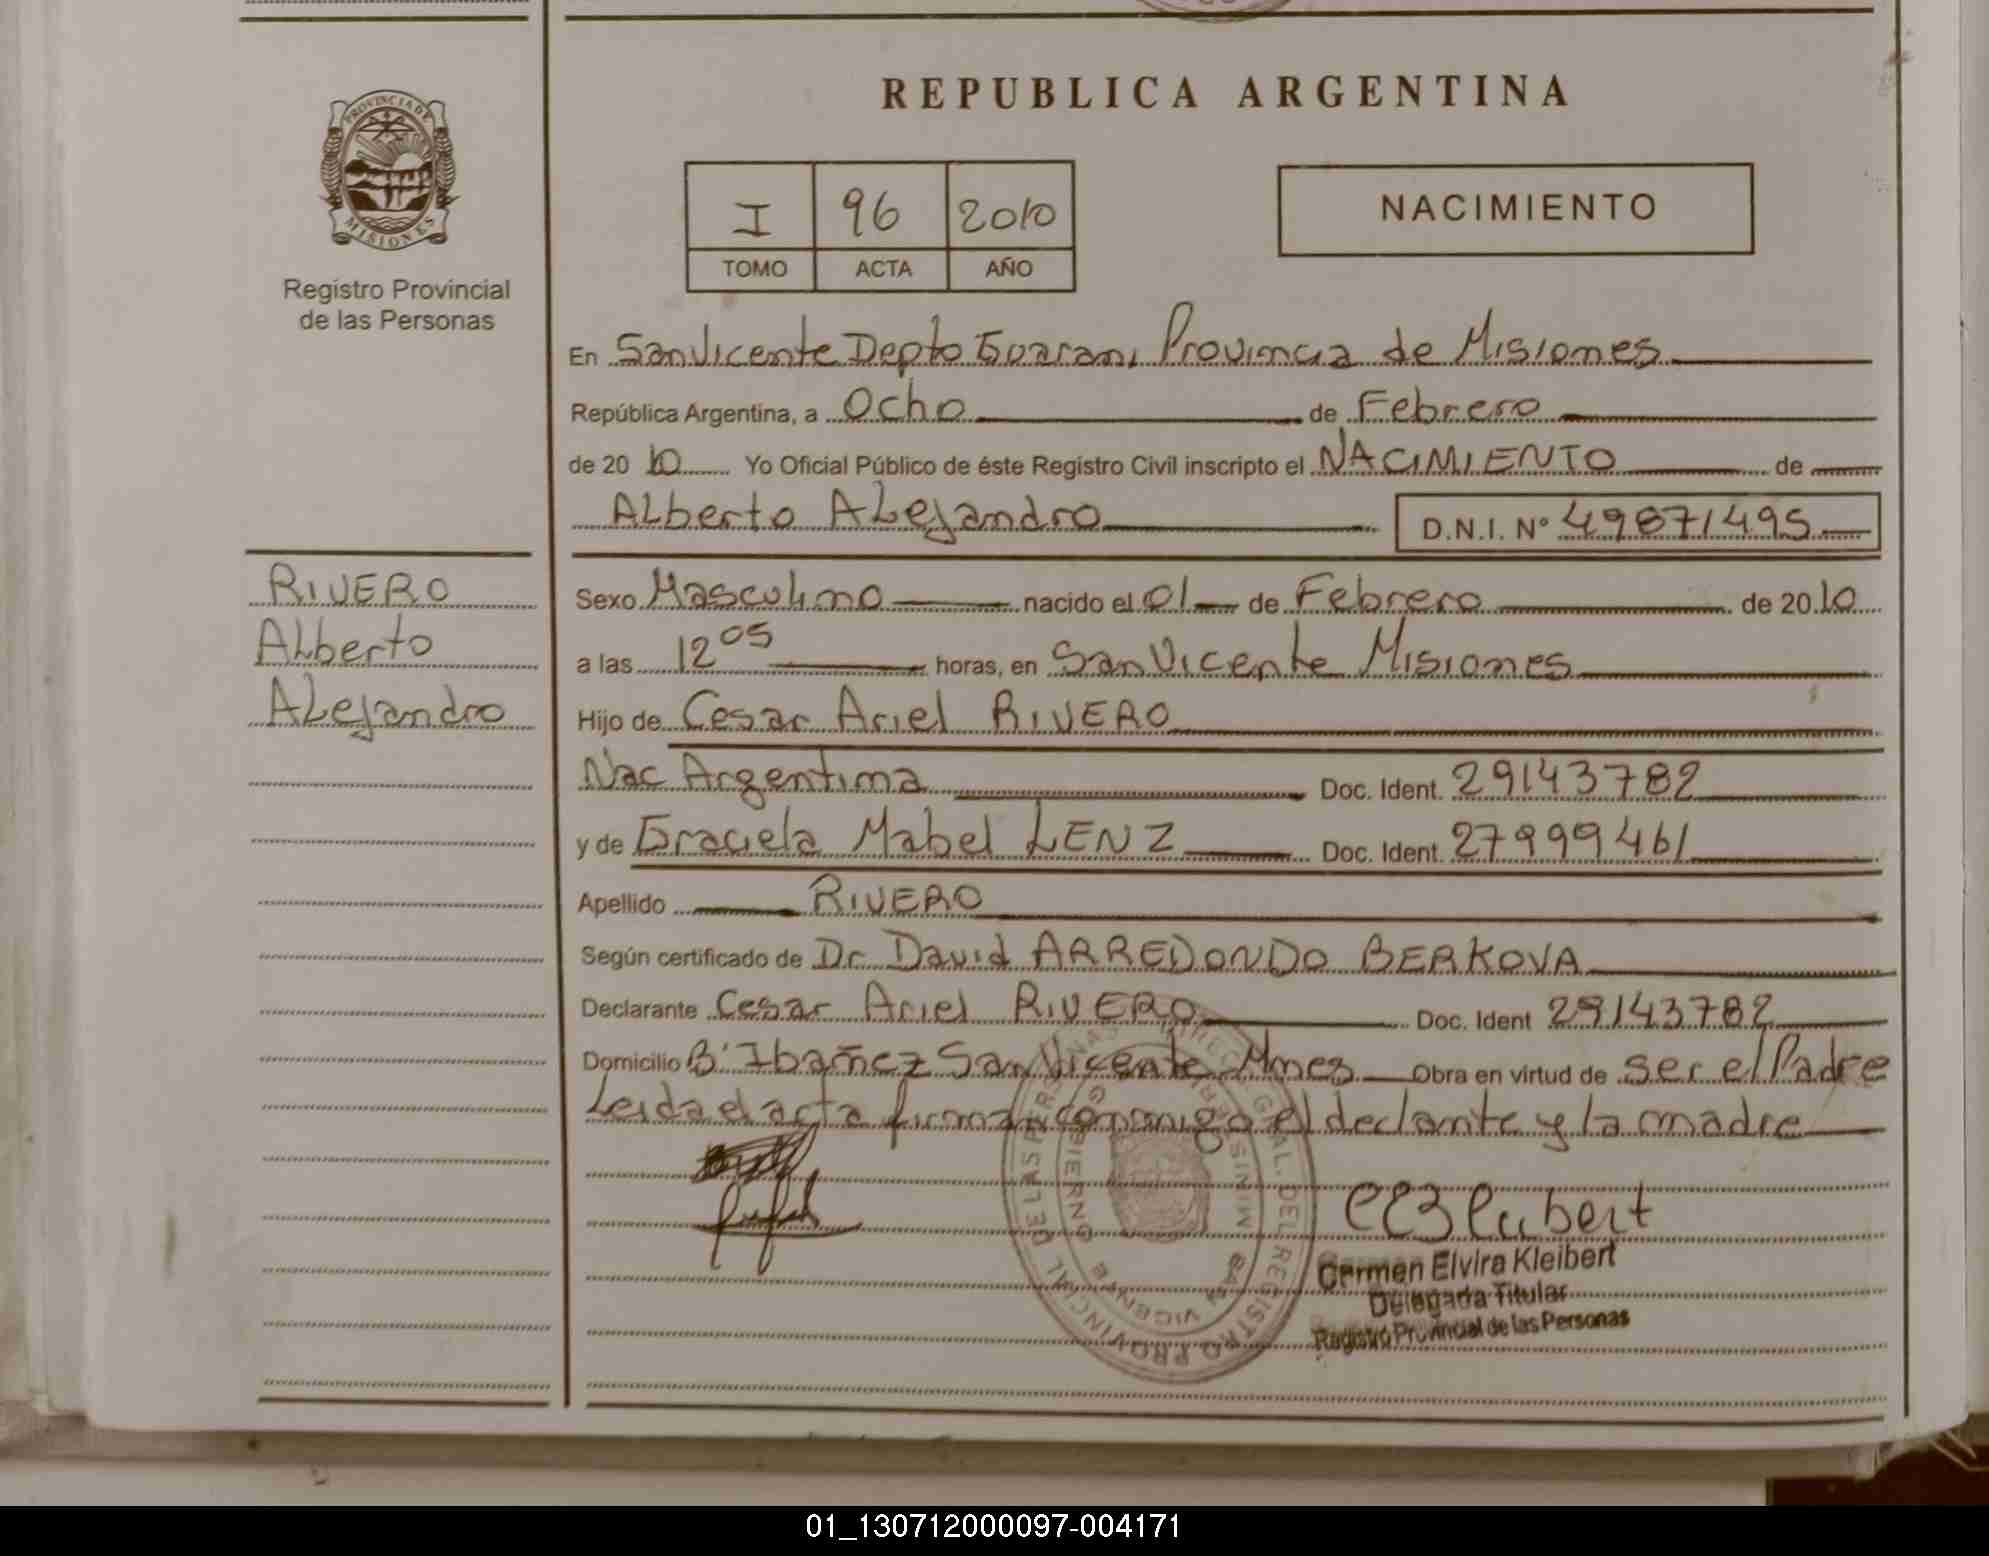 REPUBLICA ARGENTINA
PROVINCIA DE
MISIONES
Registro Provincial
de las Personas
I 96 2010
TOMO ACTA AÑO
NACIMIENTO
En San Vicente Depto Guarani Provincia de Misiones
República Argentina, a Ocho de Febrero
de 20 10 Yo Oficial Público de éste Registro Civil inscripto el NACIMIENTO de
Alberto Alejandro D.N.I. Nº 49871495
RIVERO
Alberto
Alejandro
Sexo Masculino nacido el 01 de Febrero de 20 10
a las 12 05 horas, en San Vicente Misiones
Hijo de Cesar Ariel RIVERO
Nac Argentina Doc. Ident. 29143782
y de Graciela Mabel LENZ Doc. Ident. 27999461
Apellido RIVERO
Según certificado de Dr David ARREDONDO BERKOVA
Declarante Cesar Ariel RIVERO Doc. Ident 29143782
Domicilio B° Ibañez San Vicente Mnes Obra en virtud de ser el Padre
Leida el acta firman conmigo el declante y la madre
Carmen Elvira Kleibert
Delegada Titular
Registro Provincial de las Personas
GRAL. DEL REGISTRO PROVINCIAL DE LAS PERSONAS
SAN VICENTE
01_130712000097-004171